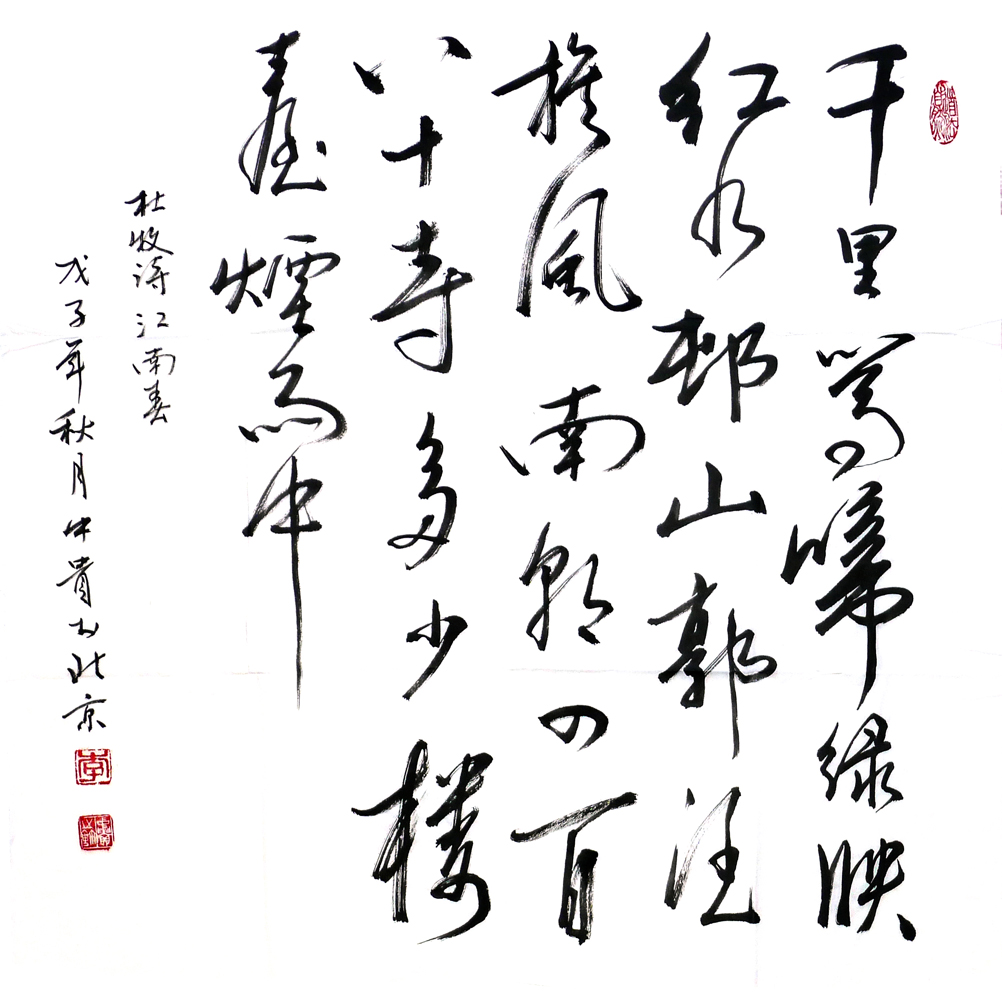 千里莺啼绿映
红水邨山郭酒
旗风南朝四百
八十寺多少楼
臺煙雨中
杜牧诗江南春
戊子年秋月贵于北京